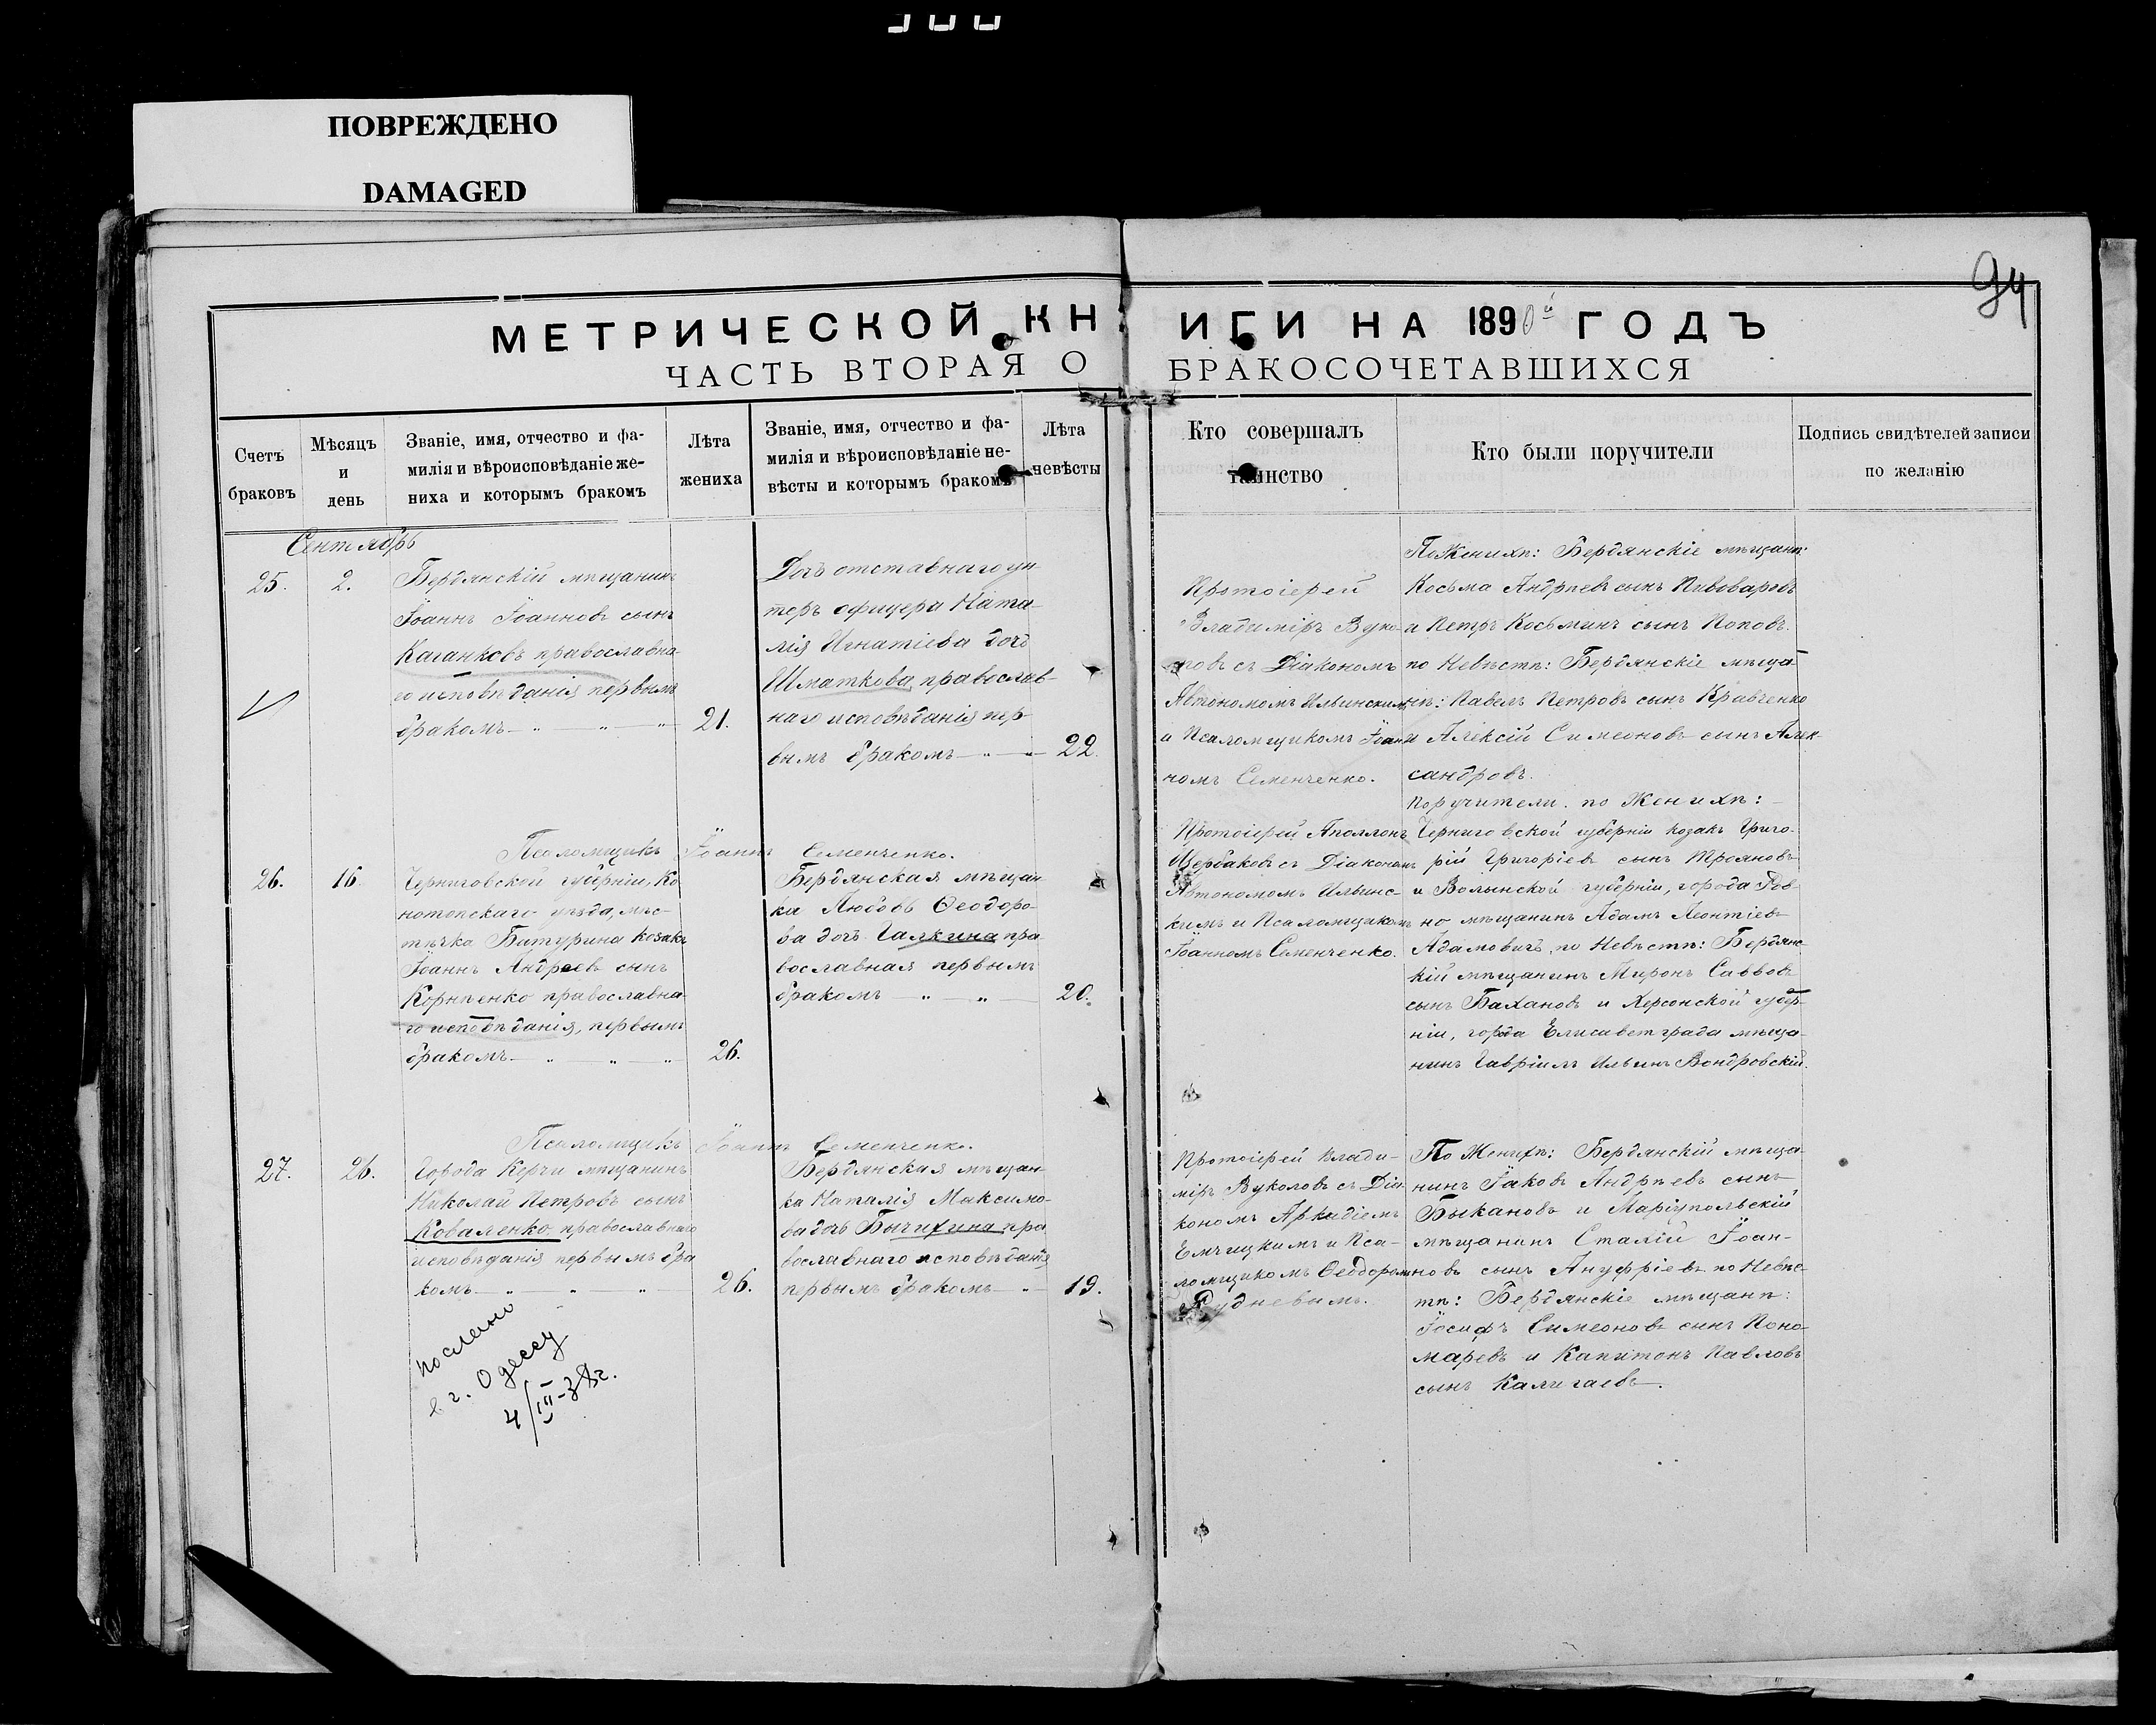 ПОВРЕЖДЕНО
DAMAGED
94
МЕТРИЧЕСКОЙ КНИГИ НА 1890й ГОДЪ
ЧАСТЬ ВТОРАЯ О БРАКОСОЧЕТАВШИХСЯ
Счетъ
браковъ
Мѣсяцъ
и
день
Званіе, имя, отчество и фа-
милія и вѣроисповѣданіе же-
ниха и которымъ бракомъ
Лѣта
жениха
Званіе, имя, отчество и фа-
милія и вѣроисповѣданіе не-
вѣсты и которымъ бракомъ
Лѣта
невѣсты
Кто совершалъ
таинство
Кто были поручители
Подпись свидѣтелей записи
по желанію
Сентябрь
25.
2.
Бердянскій мѣщанинъ
Іоаннъ Іоанновъ сынъ
Каганковъ православна
го исповѣданія первымъ
бракомъ
21.
Дочь отставнаго ун-
теръ офицера Ната-
лія Игнатіева дочь
Шматкова, православ-
наго исповѣданія пер-
вымъ бракомъ
22.
Протоіерей
Владиміръ Вуко-
ловъ съ Діакономъ
Автономомъ Ильинскимъ
и Псаломщикомъ Іоан-
номъ Семенченко.
По Женихѣ: Бердянскіе мѣщанѣ:
Косьма Андреевъ сынъ Пивоваровъ
и Петръ Косьминъ сынъ Поповъ.
по Невѣстѣ: Бердянскіе мѣща-
нѣ: Павелъ Петровъ сынъ Кравченко
и Алексій Симеоновъ сынъ Алек-
сандровъ.
Псаломщикъ Іоаннъ Семенченко.
26.
16.
Черниговской губерніи, Ко
нотопскаго уѣзда, мѣс-
тѣчка Батурина козакъ
Іоаннъ Андреевъ сынъ
Корнѣенко православна-
го исповѣданія, первымъ
бракомъ
26.
Бердянская мѣщан-
ка Любовь Ѳеодоро-
ва дочь Галкина пра
вославная первымъ
бракомъ
20.
Протоіерей Аполлонъ
Щербаковъ съ Діакономъ
Автономомъ Ильинс-
кимъ и Псаломщикомъ
Іоанномъ Семенченко.
Поручители. по Женихѣ:
Черниговской губерніи козакъ Григо-
рій Григоріевъ сынъ Трояновъ
и Волынской губерніи, города Ров-
но мѣщанинъ Адамъ Леонтіевъ
Адамовичъ, по Невѣстѣ: Бердянс-
кій мѣщанинъ Миронъ Савовъ
сынъ Бахановъ и Херсонской губер-
ніи, города Елисаветграда мѣща-
нинъ Гавріилъ Ильинъ Вондровскій.
Псаломщикъ Іоаннъ Семенченко.
27.
26.
Города Керчи мѣщанинъ
Николай Петровъ сынъ
Коваленко православнаго
исповѣданія первымъ бра
комъ
26.
Бердянская мѣщан-
ка Наталія Максимо-
ва дочь Бычихина пра
вославнаго исповѣданія
первымъ бракомъ
19.
Протоіерей Влади-
міръ Вуколовъ съ Діа-
кономъ Аркадіемъ
и Пса-
ломщикомъ Ѳеодоромъ
Рудневымъ.
По Женихѣ: Бердянскій мѣща-
нинъ Іаковъ Андреевъ сынъ
Быкановъ и Маріупольскій
мѣщанинъ Іоан-
новъ сынъ Ануфріевъ по Невѣс-
тѣ: Бердянскіе мѣщанѣ:
Іосифъ Симеоновъ сынъ Поно-
маревъ и Капитонъ Павловъ
сынъ Калигаевъ.
послано
в г. Одессу
4/III-38г.